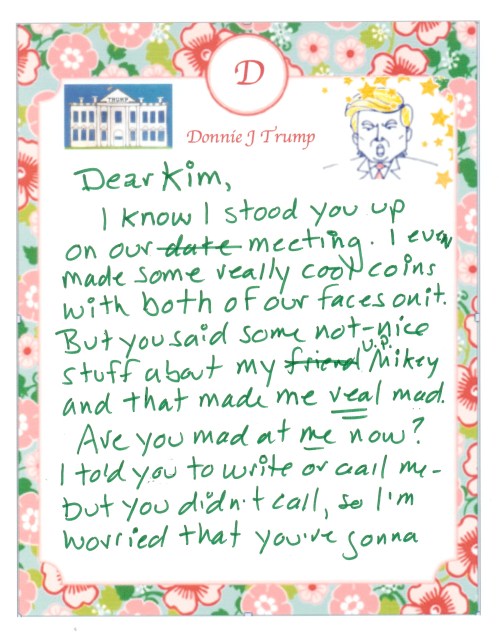 D
TRUMP
Donnie J Trump
Dear Kim,
I know I stood you up
on our ~~date~~ meeting. I even
made some really cool coins
with both of our faces on it.
But you said some not-nice
stuff about my ~~friend~~ V.P. Mikey
and that made me real mad.
Are you mad at me now?
I told you to write or call me-
but you didn't call, so I'm
worried that you've gonna